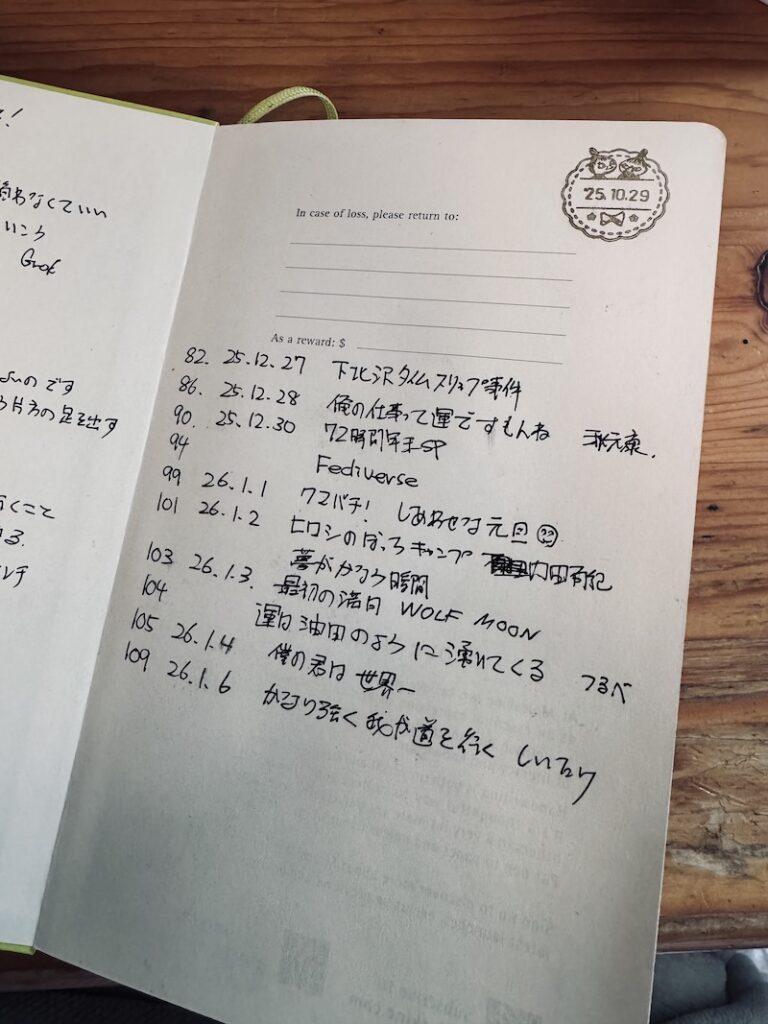 なくていい
いこう
Grok
のです
片方の足を出す
くこと
'25.10.29
In case of loss, please return to:
As a reward: $
82. 25.12.27 下北沢タイムスリップ事件
86. 25.12.28 俺の仕事って運ですもんね 秋元康.
90. 25.12.30 72時間年末SP
94 Fediverse
99 26.1.1 72バチ! しあわせな元旦
101 26.1.2 ヒロシのぼっちキャンプ 内田有紀
夢がかなう時間
103 26.1.3. 最初の満月 WOLF MOON
104 運は油田のように湧いてくる つるべ
105 26.1.4 僕の君は世界一
109 26.1.6 かなり強く我が道を行く